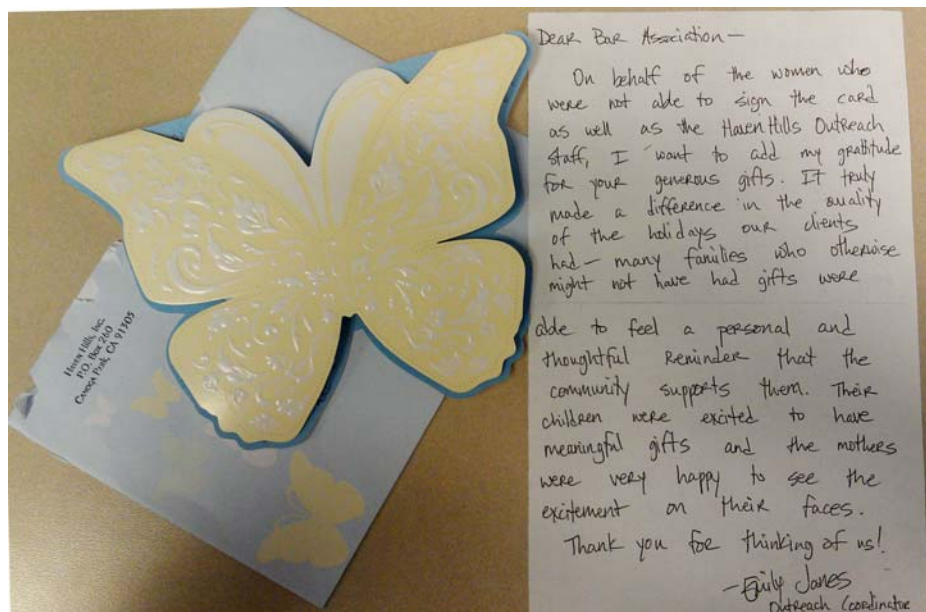 Haven Hills, Inc.
P.O. Box 260
Canoga Park, CA 91305
Dear Bar Association—
On behalf of the women who
were not able to sign the card
as well as the Haven Hills Outreach
staff, I want to add my gratitude
for your generous gifts. It truly
made a difference in the quality
of the holidays our clients
had— many families who otherwise
might not have had gifts were
able to feel a personal and
thoughtful Reminder that the
community supports them. Their
children were excited to have
meaningful gifts and the mothers
were very happy to see the
excitement on their faces.
Thank you for thinking of us!
—Emily Jones
Outreach Coordinator